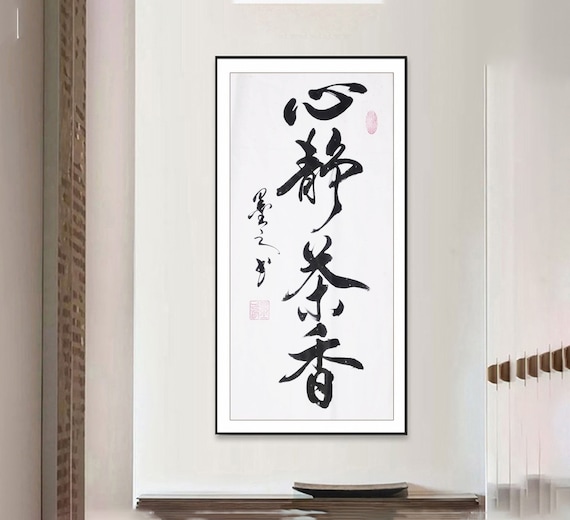 心静茶香
墨之书